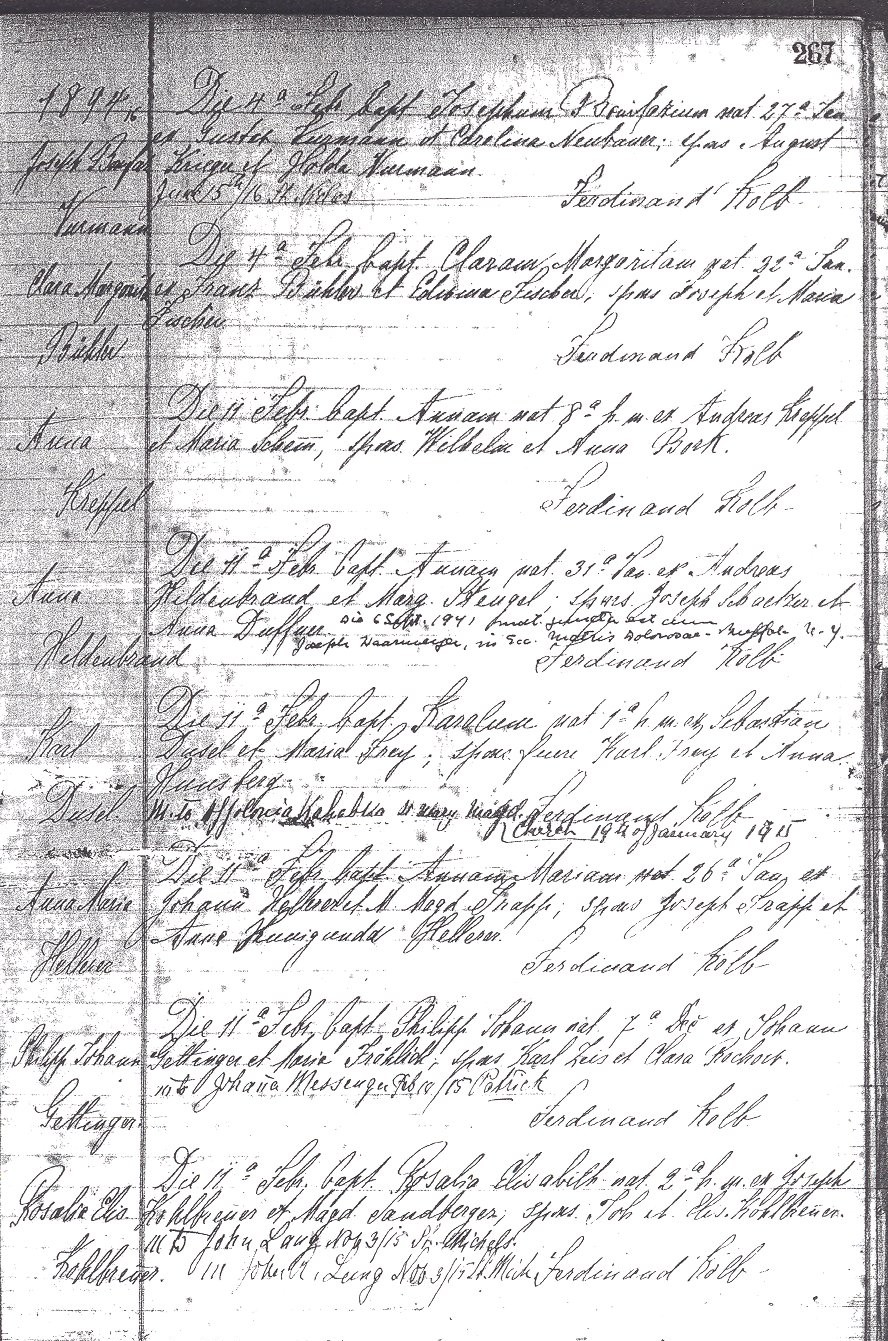 267
1894
Die 4ª Febr. bapt. Josephum Bonifazium nat. 27ª Jan
ex Gustav Vurmann et Carolina Neubauer; spons August
Joseph Bonifaz
Krieger et Holda Vurmann.
June 15th/16
Ferdinand Kolb
Vurmann
Die 4ª Febr. bapt. Claram Margaritam nat. 22ª Jan.
Clara Margarita ex Franz Bühler et Edwina Fischer, spons Joseph et Maria
Fischer
Bühler
Ferdinand Kolb
Die 11 Febr. bapt. Annam nat 8ª h. m. ex Andreas Kreppel
Anna et Maria Schem, spons. Wilhelm et Anna Bork.
Kreppel
Ferdinand Kolb
Die 11ª Febr. bapt. Annam nat. 31ª Jan. ex Andreas
Anna Hildenbrand et Marg. Stengel; spons Joseph Schaetzer et
Anna Duffner. die 6 Sept. 1941 mat. juncta est cum
Joseph in Ecc. Matris Dolorosae - Buffalo N.Y.
Hildenbrand
Ferdinand Kolb
Die 11ª Febr. bapt. Karolum nat 1ª h. m. ex Sebastian
Karl Dusel et Maria Frey; spons. fuere Karl Frey et Anna
Hunsberg
Dusel. M. to Appolonia St Mary Magd. Ferdinand Kolb
Church 19th of January 1915
Die 11ª Febr. bapt. Annam Mariam nat. 26ª Jan. ex
Anna Maria Johann Hellerer et M. Magd. Trapp; spons Joseph Trapp et
Anna Kunigunda Hellerer.
Hellerer
Ferdinand Kolb
Die 11ª Febr. bapt. Philipp Johann nat. 7ª Dec ex Johann
Philipp Johann Gettinger et Maria Fröhlich; spons Karl Zeis et Clara
m to Johana Messenger Feb 10/15 Patrick
Gettinger.
Ferdinand Kolb
Die 11ª Febr. bapt. Rosalia Elisabeth nat. 2ª h. m. ex Joseph
Rosalia Elis. Kohlbrener et Magd Sandberger; spons. Joh et Elis. Kohlbrener.
m to John Lang Nov 3/15 St. Michels.
Kohlbrener. m John Lang Nov 3/15 St. Mich Ferdinand Kolb